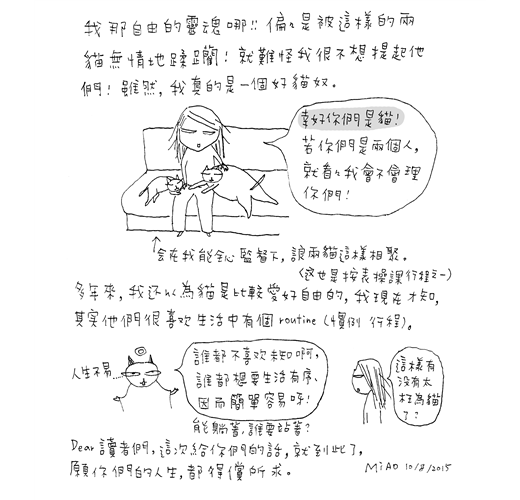 我那自由的靈魂哪!! 偏偏是被這樣的兩
貓無情地蹂躪! 就難怪我很不想提起他
們! 雖然, 我真的是一個好貓奴。
幸好你們是貓!
若你們是兩個人,
就看看我會不會理
你們!
會在我能全心監督下, 讓兩貓這樣相聚。
(這也是按表操課行程之一)
多年來, 我还以為貓是比較愛好自由的, 我現在才知,
其实他們很喜欢生活中有個 routine (慣例行程)。
人生不易...
誰都不喜欢未知啊,
誰都想要生活有序、
因而簡單容易呀!
能躺著, 誰要站著?
這樣有
没有太
枉為貓
了?
Dear 讀者們, 這次給你們的話, 就到此了,
願你們的人生, 都得償所求。
MiAO 10/8/2015